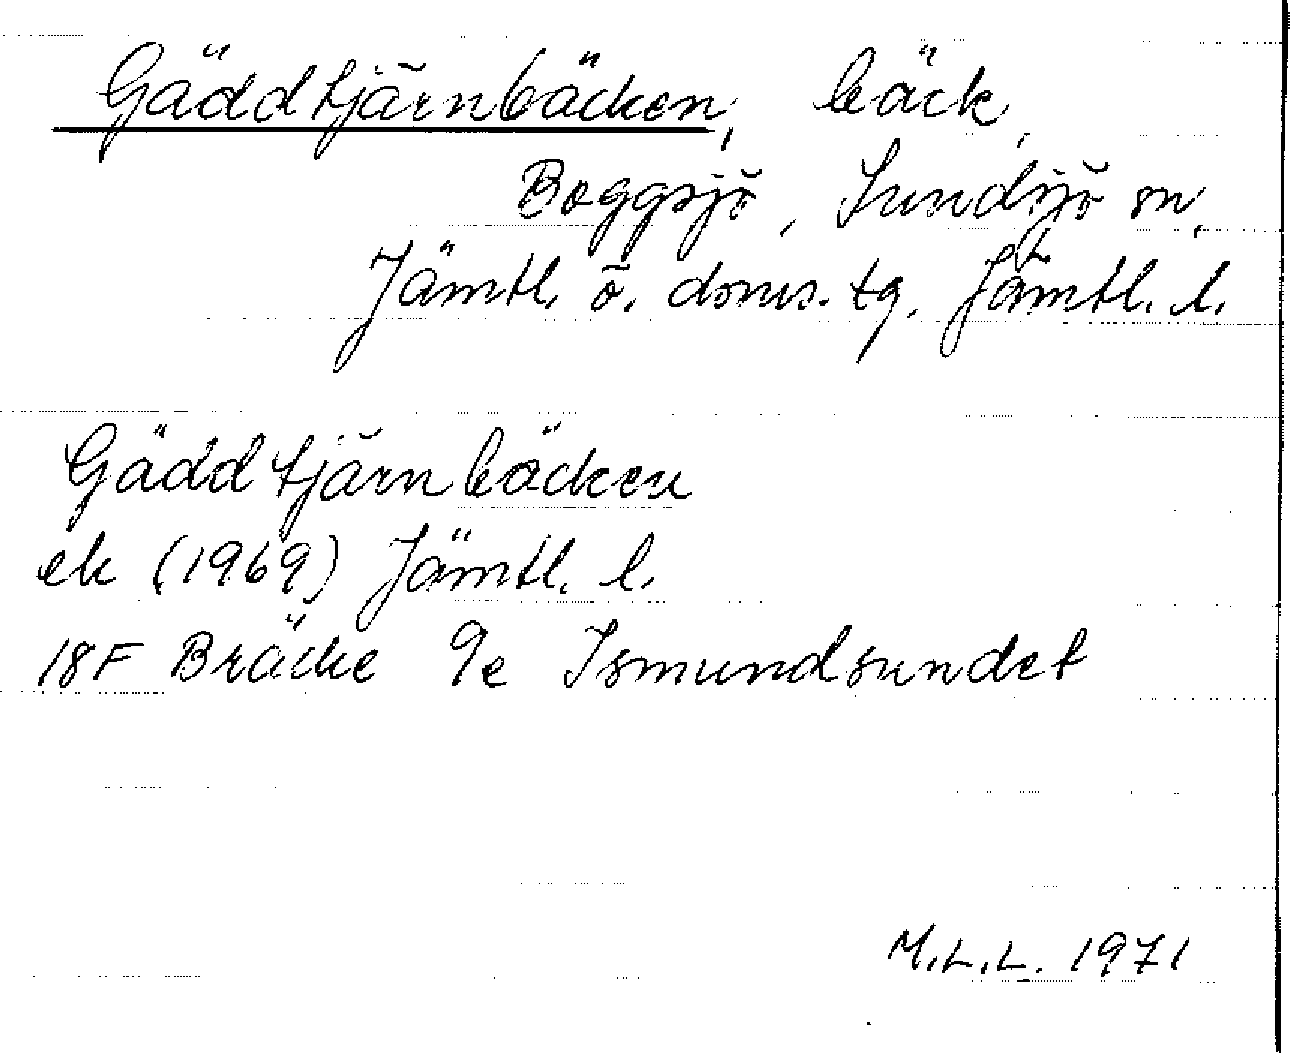 Gäddtjärnbäcken, bäck,
Boggsjö, Sundsjö sn,
Jämtl. ö. doms. tg. Jämtl. l.
Gäddtjärnbäcken
ek (1969) Jämtl. l.
18F Bräcke 9e Ismundsundet
M.L.L. 1971